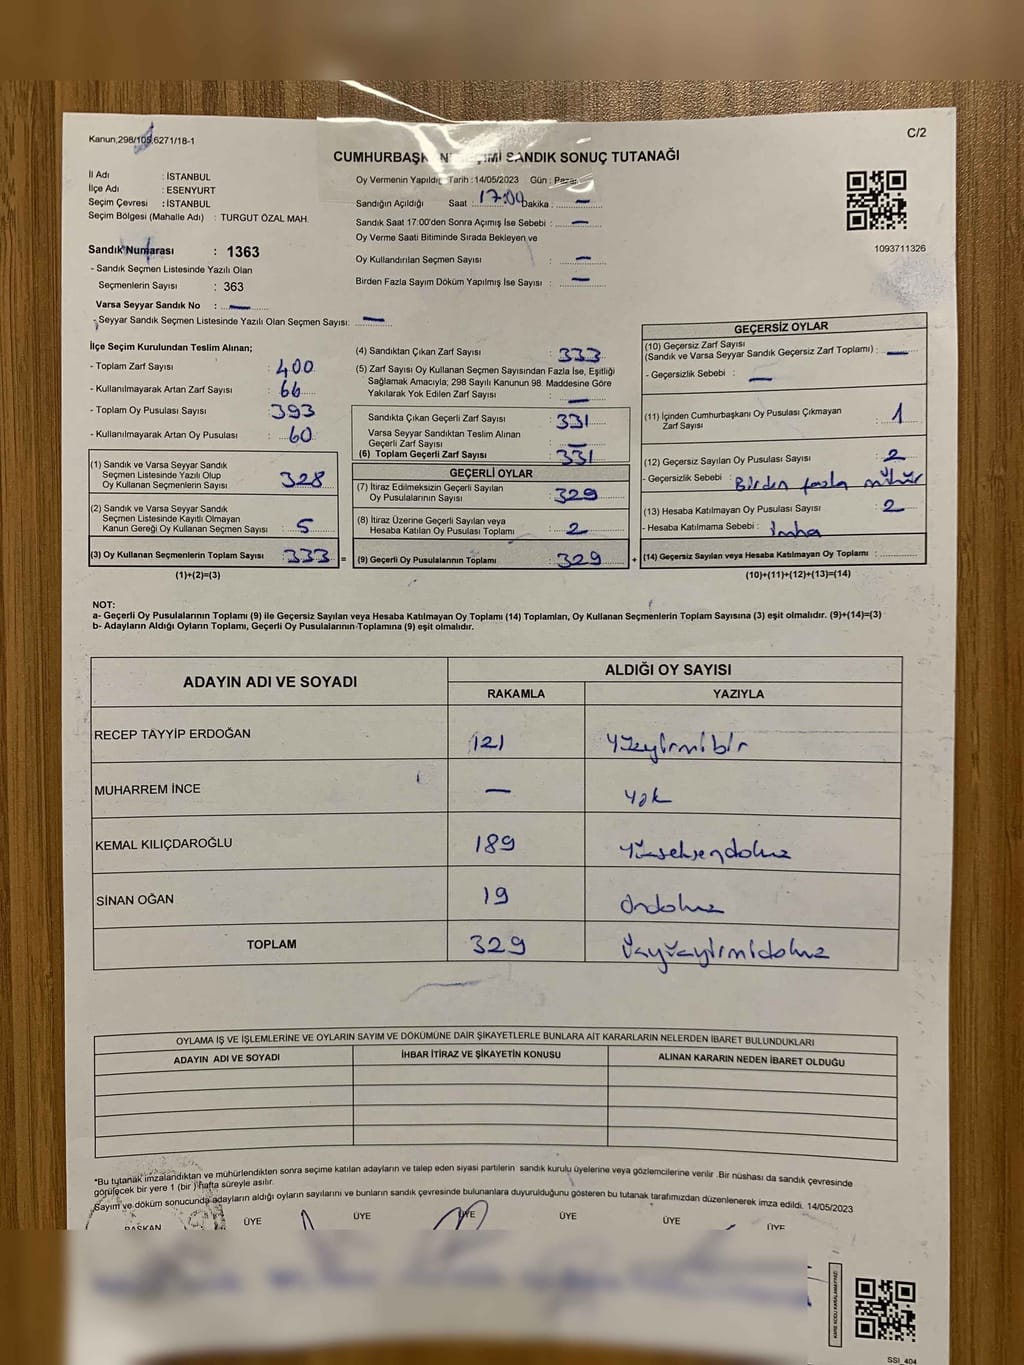 Kanun,298/105,6271/18-1
C/2
CUMHURBAŞK SANDIK SONUÇ TUTANAĞI
İl Adı : İSTANBUL
İlçe Adı : ESENYURT
Seçim Çevresi : İSTANBUL
Seçim Bölgesi (Mahalle Adı) : TURGUT ÖZAL MAH.
Sandık Numarası : 1363
- Sandık Seçmen Listesinde Yazılı Olan
Seçmenlerin Sayısı : 363
Varsa Seyyar Sandık No : —
- Seyyar Sandık Seçmen Listesinde Yazılı Olan Seçmen Sayısı: —
Oy Vermenin Yapıldığı Tarih :14/05/2023 Gün : Pazar
Sandığın Açıldığı Saat : 17:00 Dakika : —
Sandık Saat 17:00'den Sonra Açımış İse Sebebi : —
Oy Verme Saati Bitiminde Sırada Bekleyen ve
Oy Kullandırılan Seçmen Sayısı : —
Birden Fazla Sayım Döküm Yapılmış İse Sayısı : —
1093711326
İlçe Seçim Kurulundan Teslim Alınan;
- Toplam Zarf Sayısı : 400
- Kullanılmayarak Artan Zarf Sayısı : 66
- Toplam Oy Pusulası Sayısı : 393
- Kullanılmayarak Artan Oy Pusulası : 60
(1) Sandık ve Varsa Seyyar Sandık
Seçmen Listesinde Yazılı Olup
Oy Kullanan Seçmenlerin Sayısı : 328
(2) Sandık ve Varsa Seyyar Sandık
Seçmen Listesinde Kayıtlı Olmayan
Kanun Gereği Oy Kullanan Seçmen Sayısı : 5
(3) Oy Kullanan Seçmenlerin Toplam Sayısı : 333 =
(1)+(2)=(3)
(4) Sandıktan Çıkan Zarf Sayısı : 333
(5) Zarf Sayısı Oy Kullanan Seçmen Sayısından Fazla İse, Eşitliği
Sağlamak Amacıyla; 298 Sayılı Kanunun 98. Maddesine Göre
Yakılarak Yok Edilen Zarf Sayısı : —
Sandıkta Çıkan Geçerli Zarf Sayısı : 331
Varsa Seyyar Sandıktan Teslim Alınan
Geçerli Zarf Sayısı : —
(6) Toplam Geçerli Zarf Sayısı : 331
GEÇERLİ OYLAR
(7) İtiraz Edilmeksizin Geçerli Sayılan
Oy Pusulalarının Sayısı : 329
(8) İtiraz Üzerine Geçerli Sayılan veya
Hesaba Katılan Oy Pusulası Toplamı : 2
(9) Geçerli Oy Pusulalarının Toplamı : 329 +
GEÇERSİZ OYLAR
(10) Geçersiz Zarf Sayısı
(Sandık ve Varsa Seyyar Sandık Geçersiz Zarf Toplamı) : —
- Geçersizlik Sebebi : —
(11) İçinden Cumhurbaşkanı Oy Pusulası Çıkmayan
Zarf Sayısı : 1
(12) Geçersiz Sayılan Oy Pusulası Sayısı : 2
- Geçersizlik Sebebi : Birden fazla mühür
(13) Hesaba Katılmayan Oy Pusulası Sayısı : 2
- Hesaba Katılmama Sebebi : imha
(14) Geçersiz Sayılan veya Hesaba Katılmayan Oy Toplamı :
(10)+(11)+(12)+(13)=(14)
NOT:
a- Geçerli Oy Pusulalarının Toplamı (9) ile Geçersiz Sayılan veya Hesaba Katılmayan Oy Toplamı (14) Toplamları, Oy Kullanan Seçmenlerin Toplam Sayısına (3) eşit olmalıdır. (9)+(14)=(3)
b- Adayların Aldığı Oyların Toplamı, Geçerli Oy Pusulalarının Toplamına (9) eşit olmalıdır.
ADAYIN ADI VE SOYADI ALDIĞI OY SAYISI
RAKAMLA YAZIYLA
RECEP TAYYİP ERDOĞAN 121 Yüzyirmibir
MUHARREM İNCE — Yok
KEMAL KILIÇDAROĞLU 189 Yüzseksendokuz
SİNAN OĞAN 19 Ondokuz
TOPLAM 329 Üçyüzyirmidokuz
OYLAMA İŞ VE İŞLEMLERİNE VE OYLARIN SAYIM VE DÖKÜMÜNE DAİR ŞİKAYETLERLE BUNLARA AİT KARARLARIN NELERDEN İBARET BULUNDUKLARI
ADAYIN ADI VE SOYADI İHBAR İTİRAZ VE ŞİKAYETİN KONUSU ALINAN KARARIN NEDEN İBARET OLDUĞU
*Bu tutanak imzalandıktan ve mühürlendikten sonra seçime katılan adayların ve talep eden siyasi partilerin sandık kurulu üyelerine veya gözlemcilerine verilir .Bir nüshası da sandık çevresinde
görülecek bir yere 1 (bir )hafta süreyle asılır.
Sayım ve döküm sonucunda adayların aldığı oyların sayılarını ve bunların sandık çevresinde bulunanlara duyurulduğunu gösteren bu tutanak tarafımızdan düzenlenerek imza edildi. 14/05/2023
BAŞKAN ÜYE ÜYE ÜYE ÜYE ÜYE ÜYE
SSI_404